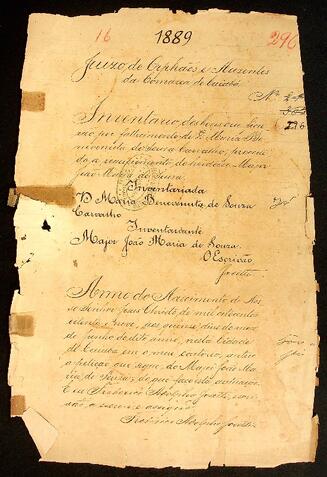 16 1889 296
Juizo de Orphãos e Ausentes
da Comarca de Cuiabá
Nº
296
Inventario dos bens que
por fallecimento de D. Maria Be
nevenuta de Souza Carvalho, proce
do, a requerimento do Major
João Maria de Souza.
Inventariada
D. Maria Benevenuta de Souza
Carvalho
Inventariante
Major João Maria de Souza.
O Escrivão
Anno do Nascimento de Nos
so Senhor Jesus Christo de mil oitocentos
oitenta e nove, aos quinze dias do mez
de Junho do dito anno, nesta Cidade
de Cuiabá em o meu cartorio, autuo
a petição que segue, do Major João Ma
ria de Souza; do que faço esta autuação.
E eu Frederico Adolpho, escri
vão, a escrevi e assigno.
Frederico Adolpho